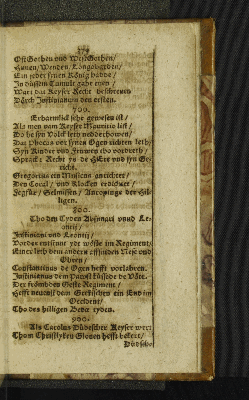 OstGothen und WestGothen/
Hunen/Wenden/Longobarden/
Ein jeder synen König hadde/
In düssem Tumult gahr euen/
Wart dat Keyser Recht beschreuen
Dörch Justinianum den ersten.
700.
Erbarmlick sehr gewesen ist/
Als men vam Keyser Mauritio list/
Do he syn Volck leth nedderhowen/
Dat Phocas vor synen Ogen
Syn Kinder und Fruwen
Sprack: Recht ys de HErr und syn Ge-
richt.
Gregorius ein Missam anrichtet/
Den Coral/und Klocken erdichtet/
Fegfür/Selmissen/Anropinge der Hil-
ligen.
800.
Tho den Tyden Absimari vnd Le-
ontij/
Justiniani und Leontij/
Vordes entstunt yd wösste im Regiment/
Einer leth dem andern affsniden Nese und
Ohren/
Constantinus de Ogen hefft vorlahren.
Justinianus dem Pawst küssede de Vöte.
Der frömbden Geste Regiment/
Hefft nenmal dem Grekischen ein End im
Occident/
Tho des hilligen Bedæ tyden.
900.
Als Carolus Düdescher Keyser wert
Thom Christlyken Glouen hefft bekert/
Düdsche